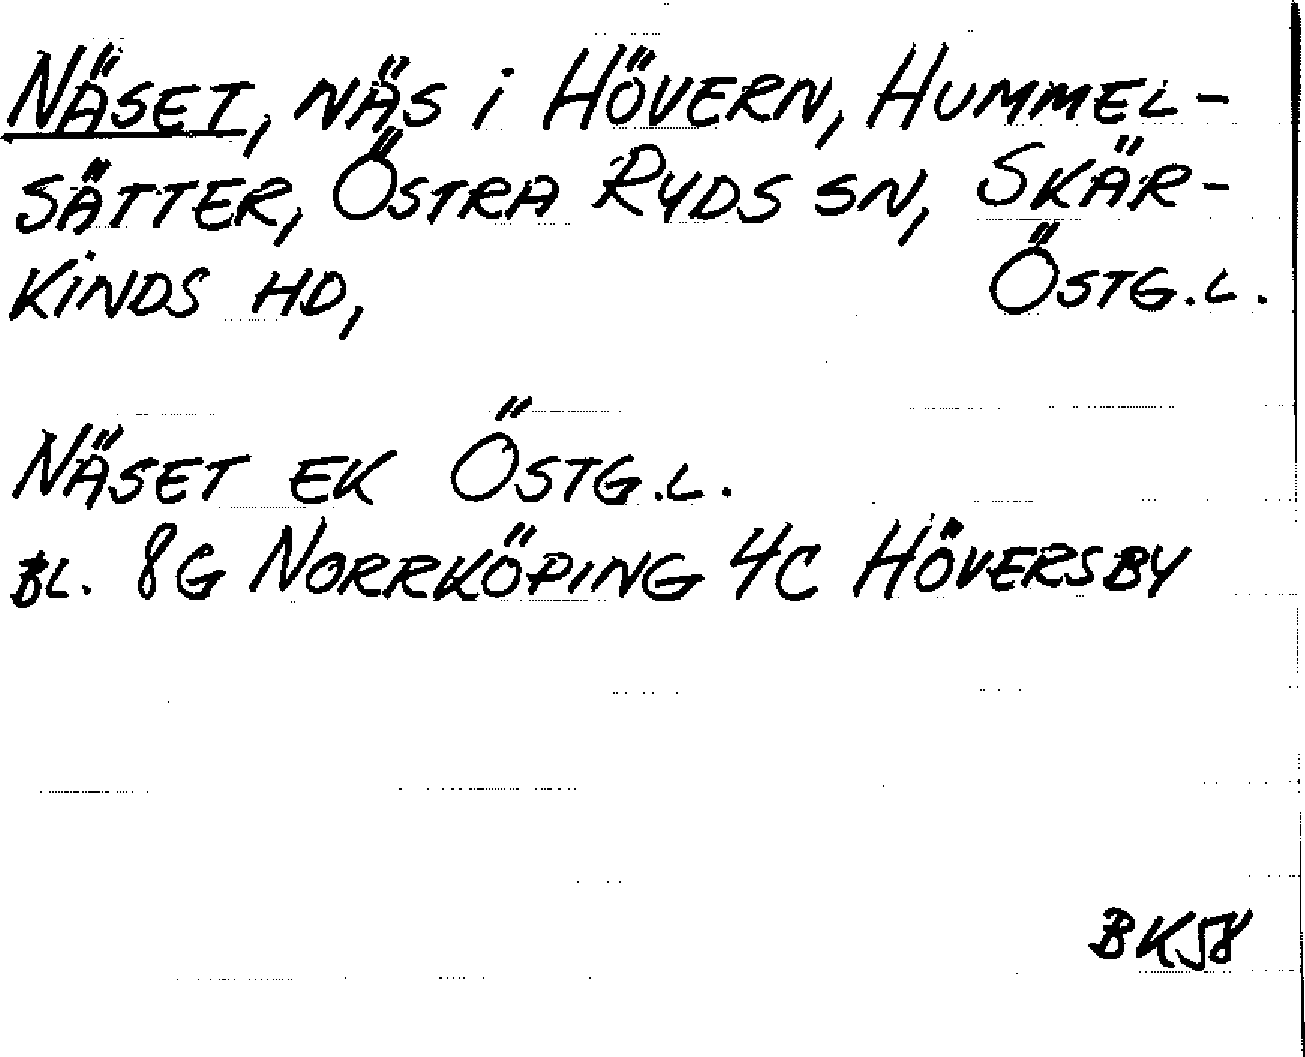 NÄSET, NÄS i HÖVERN, HUMMEL-
SÄTTER, ÖSTRA RYDS SN, SKÄR-
KINDS HD, ÖSTG.L.
NÄSET EK ÖSTG.L.
BL. 8G NORRKÖPING 4C HÖVERSBY
BK58